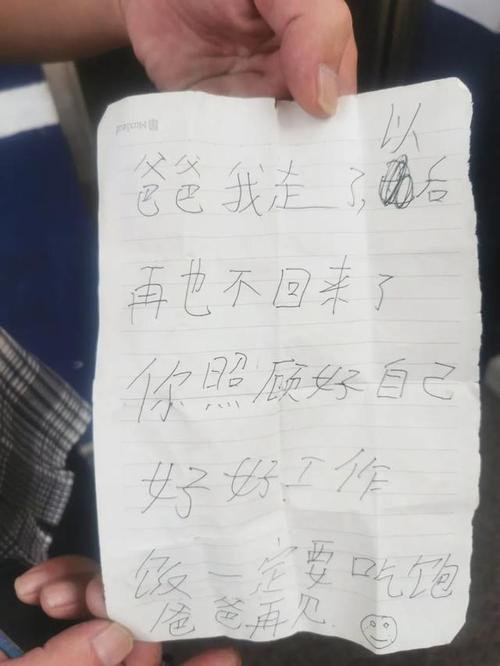 爸爸我走了,以后
再也不回来了
你照顾好自己
好好工作
饭一定要吃饱
爸爸再见.